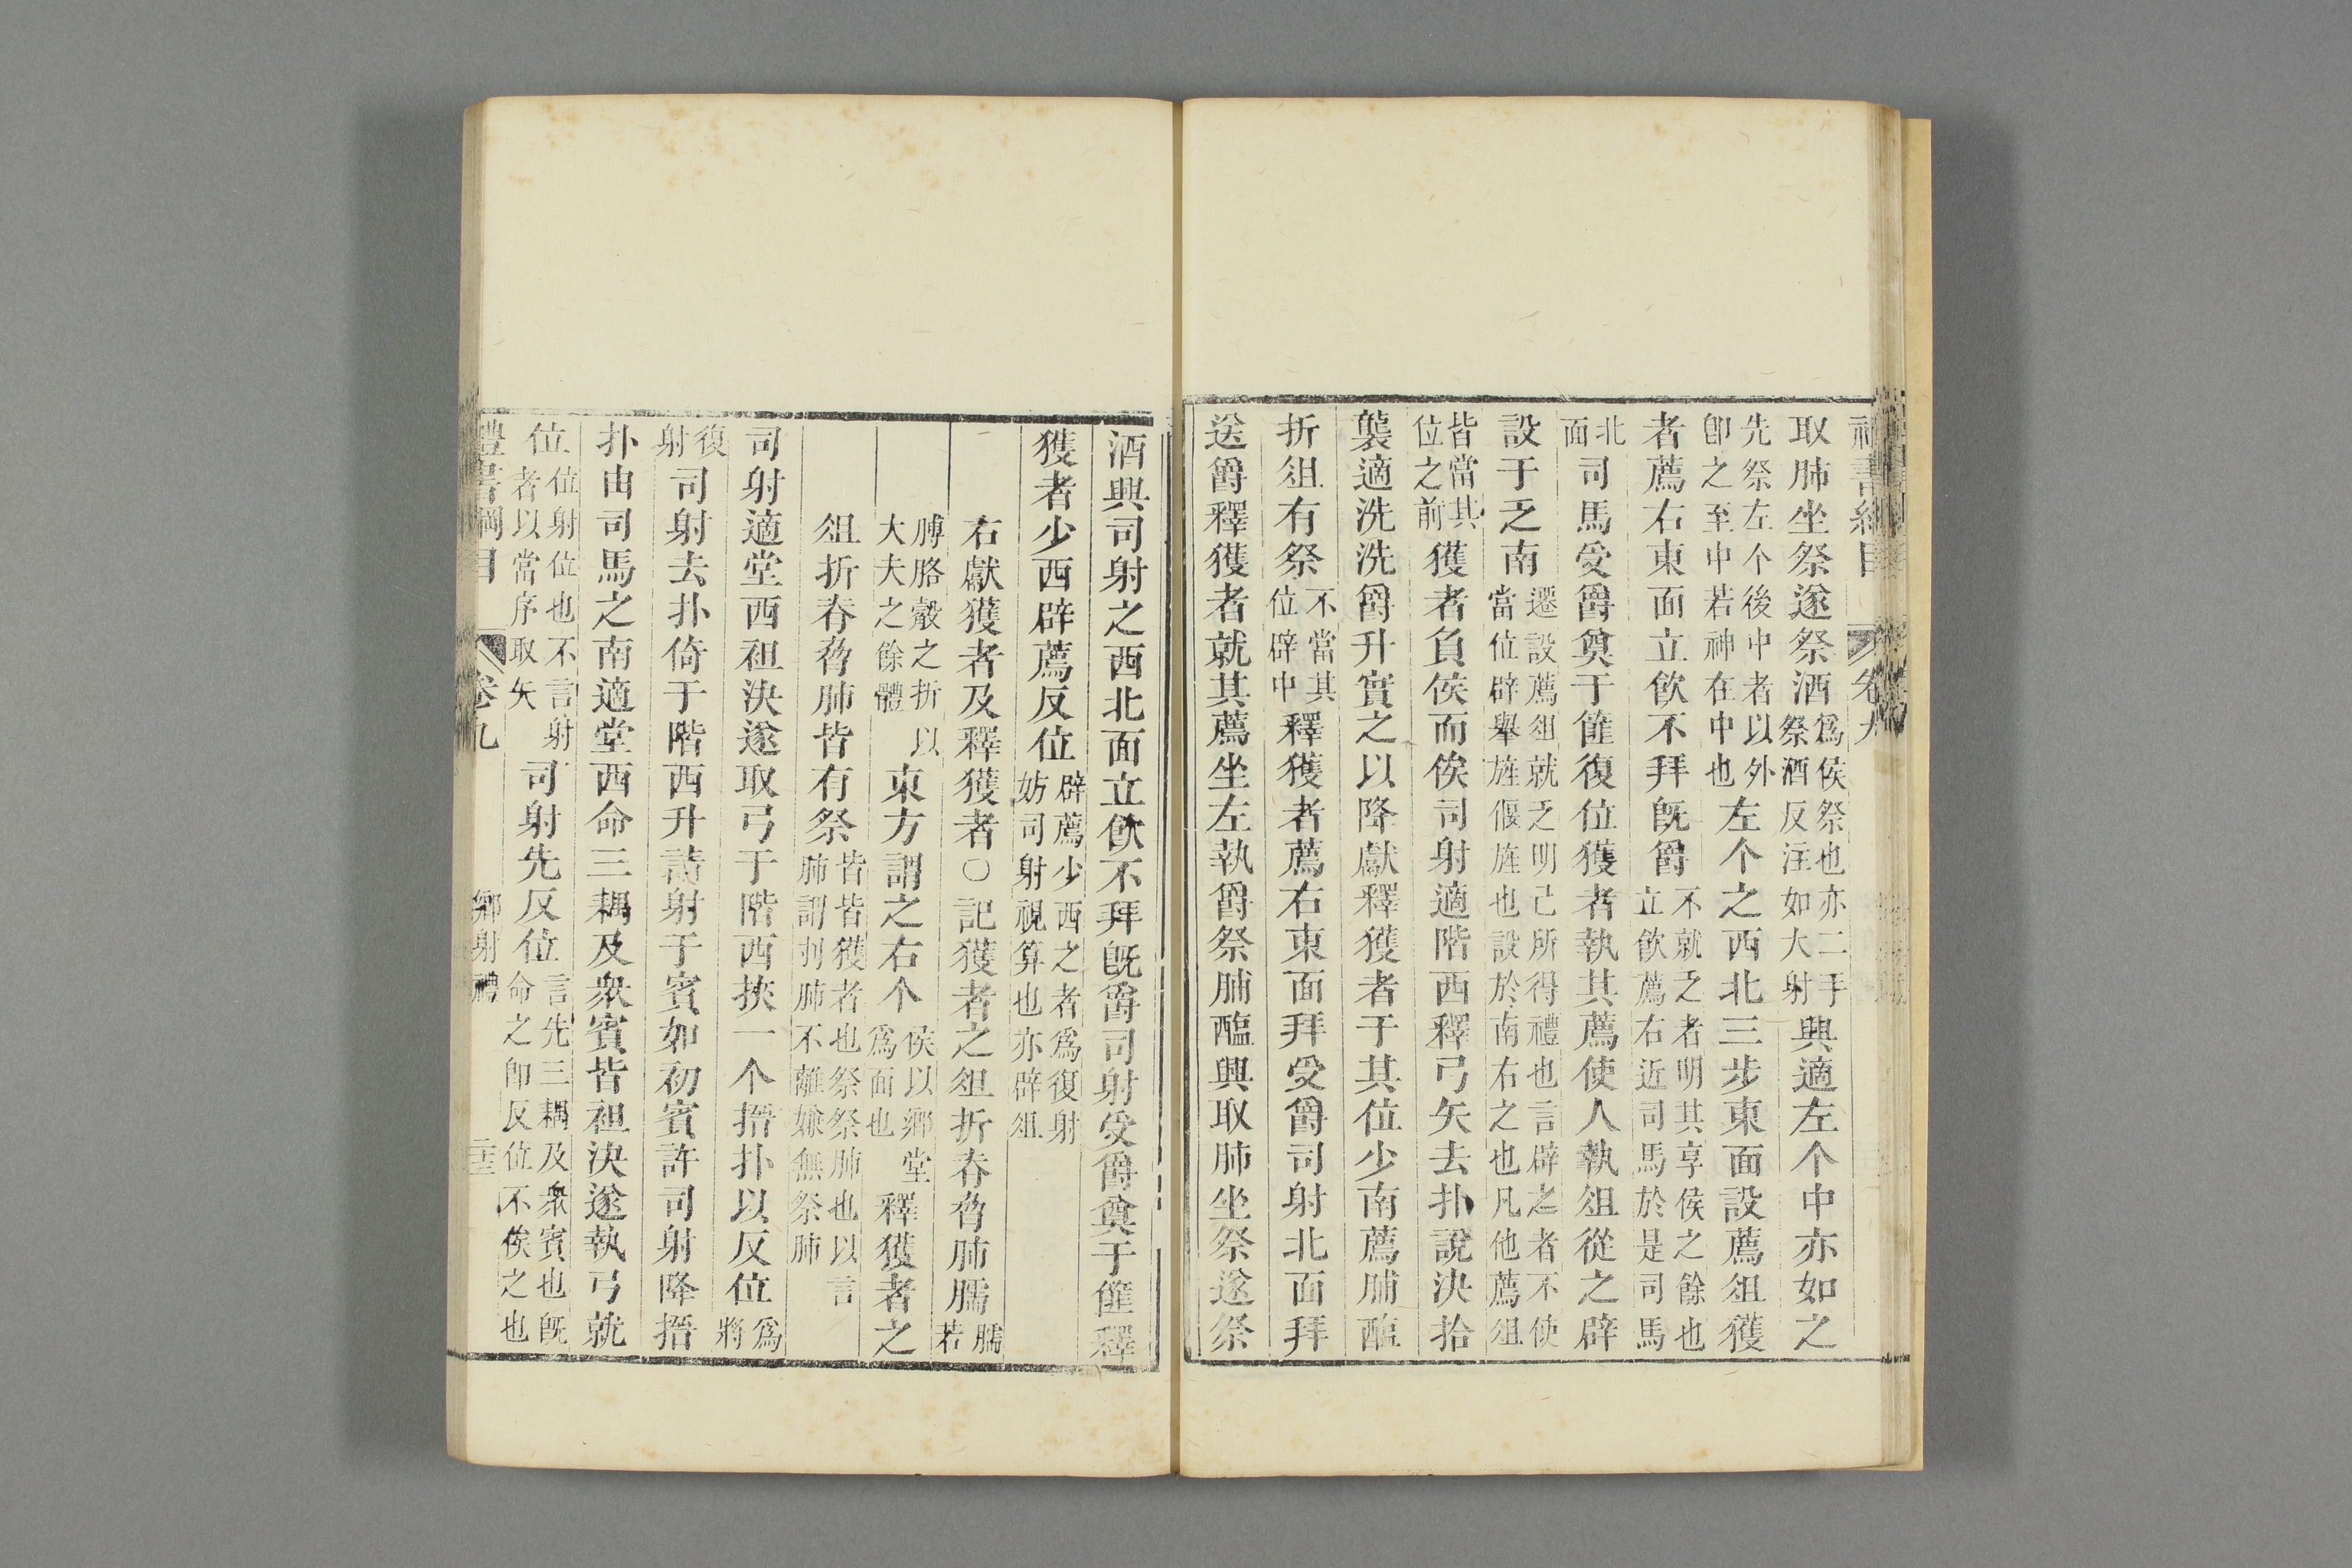 取肺坐祭遂祭酒爲侯祭也亦二手祭酒反注如大射興適左个中亦如之
先祭左个後中者以外卽之至中若神在中也左个之西北三步東面設薦俎獲
者薦右東面立飲不拜旣爵不就乏者明其享侯之餘也立飲薦右近司馬於是司馬
北面司馬受爵奠于篚復位獲者執其薦使人執俎從之辟
設于乏南遷設薦俎就乏明己所得禮也言辟之者不使當位辟舉旌偃旌也設於南右之也凡他薦俎
皆當其位之前獲者負侯而俟司射適階西釋弓矢去扑說決拾
襲適洗洗爵升實之以降獻釋獲者于其位少南薦脯醢
折俎有祭不當其位辟中釋獲者薦右東面拜受爵司射北面拜
送爵釋獲者就其薦坐左執爵祭脯醢興取肺坐祭遂祭
酒興司射之西北面立飲不拜旣爵司射受爵奠于篚釋
獲者少西辟薦反位辟薦少西之者爲復射妨司射視算也亦辟俎
右獻獲者及釋獲者○記獲者之俎折脊脅肺臑臑若
膊胳觳之折以大夫之餘體東方謂之右个侯以鄉堂爲面也釋獲者之
俎折脊脅肺皆有祭皆皆獲者也祭祭肺也以言肺謂刌肺不離嫌無祭肺
司射適堂西袒決遂取弓于階西挾一个搢扑以反位爲將
復射司射去扑倚于階西升請射于賓如初賓許司射降搢
扑由司馬之南適堂西命三耦及衆賓皆袒決遂執弓就
位位射位也不言射者以當序取矢司射先反位言先三耦及衆賓也旣命之卽反位不俟之也
禮書綱目 卷九 鄉射禮